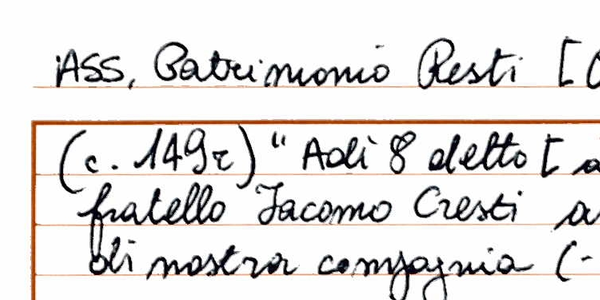 ASS, Patrimonio Resti [
(c. 149r) " Adì 8 detto [ a
fratello Jacomo Cresti a
di nostra compagnia (-